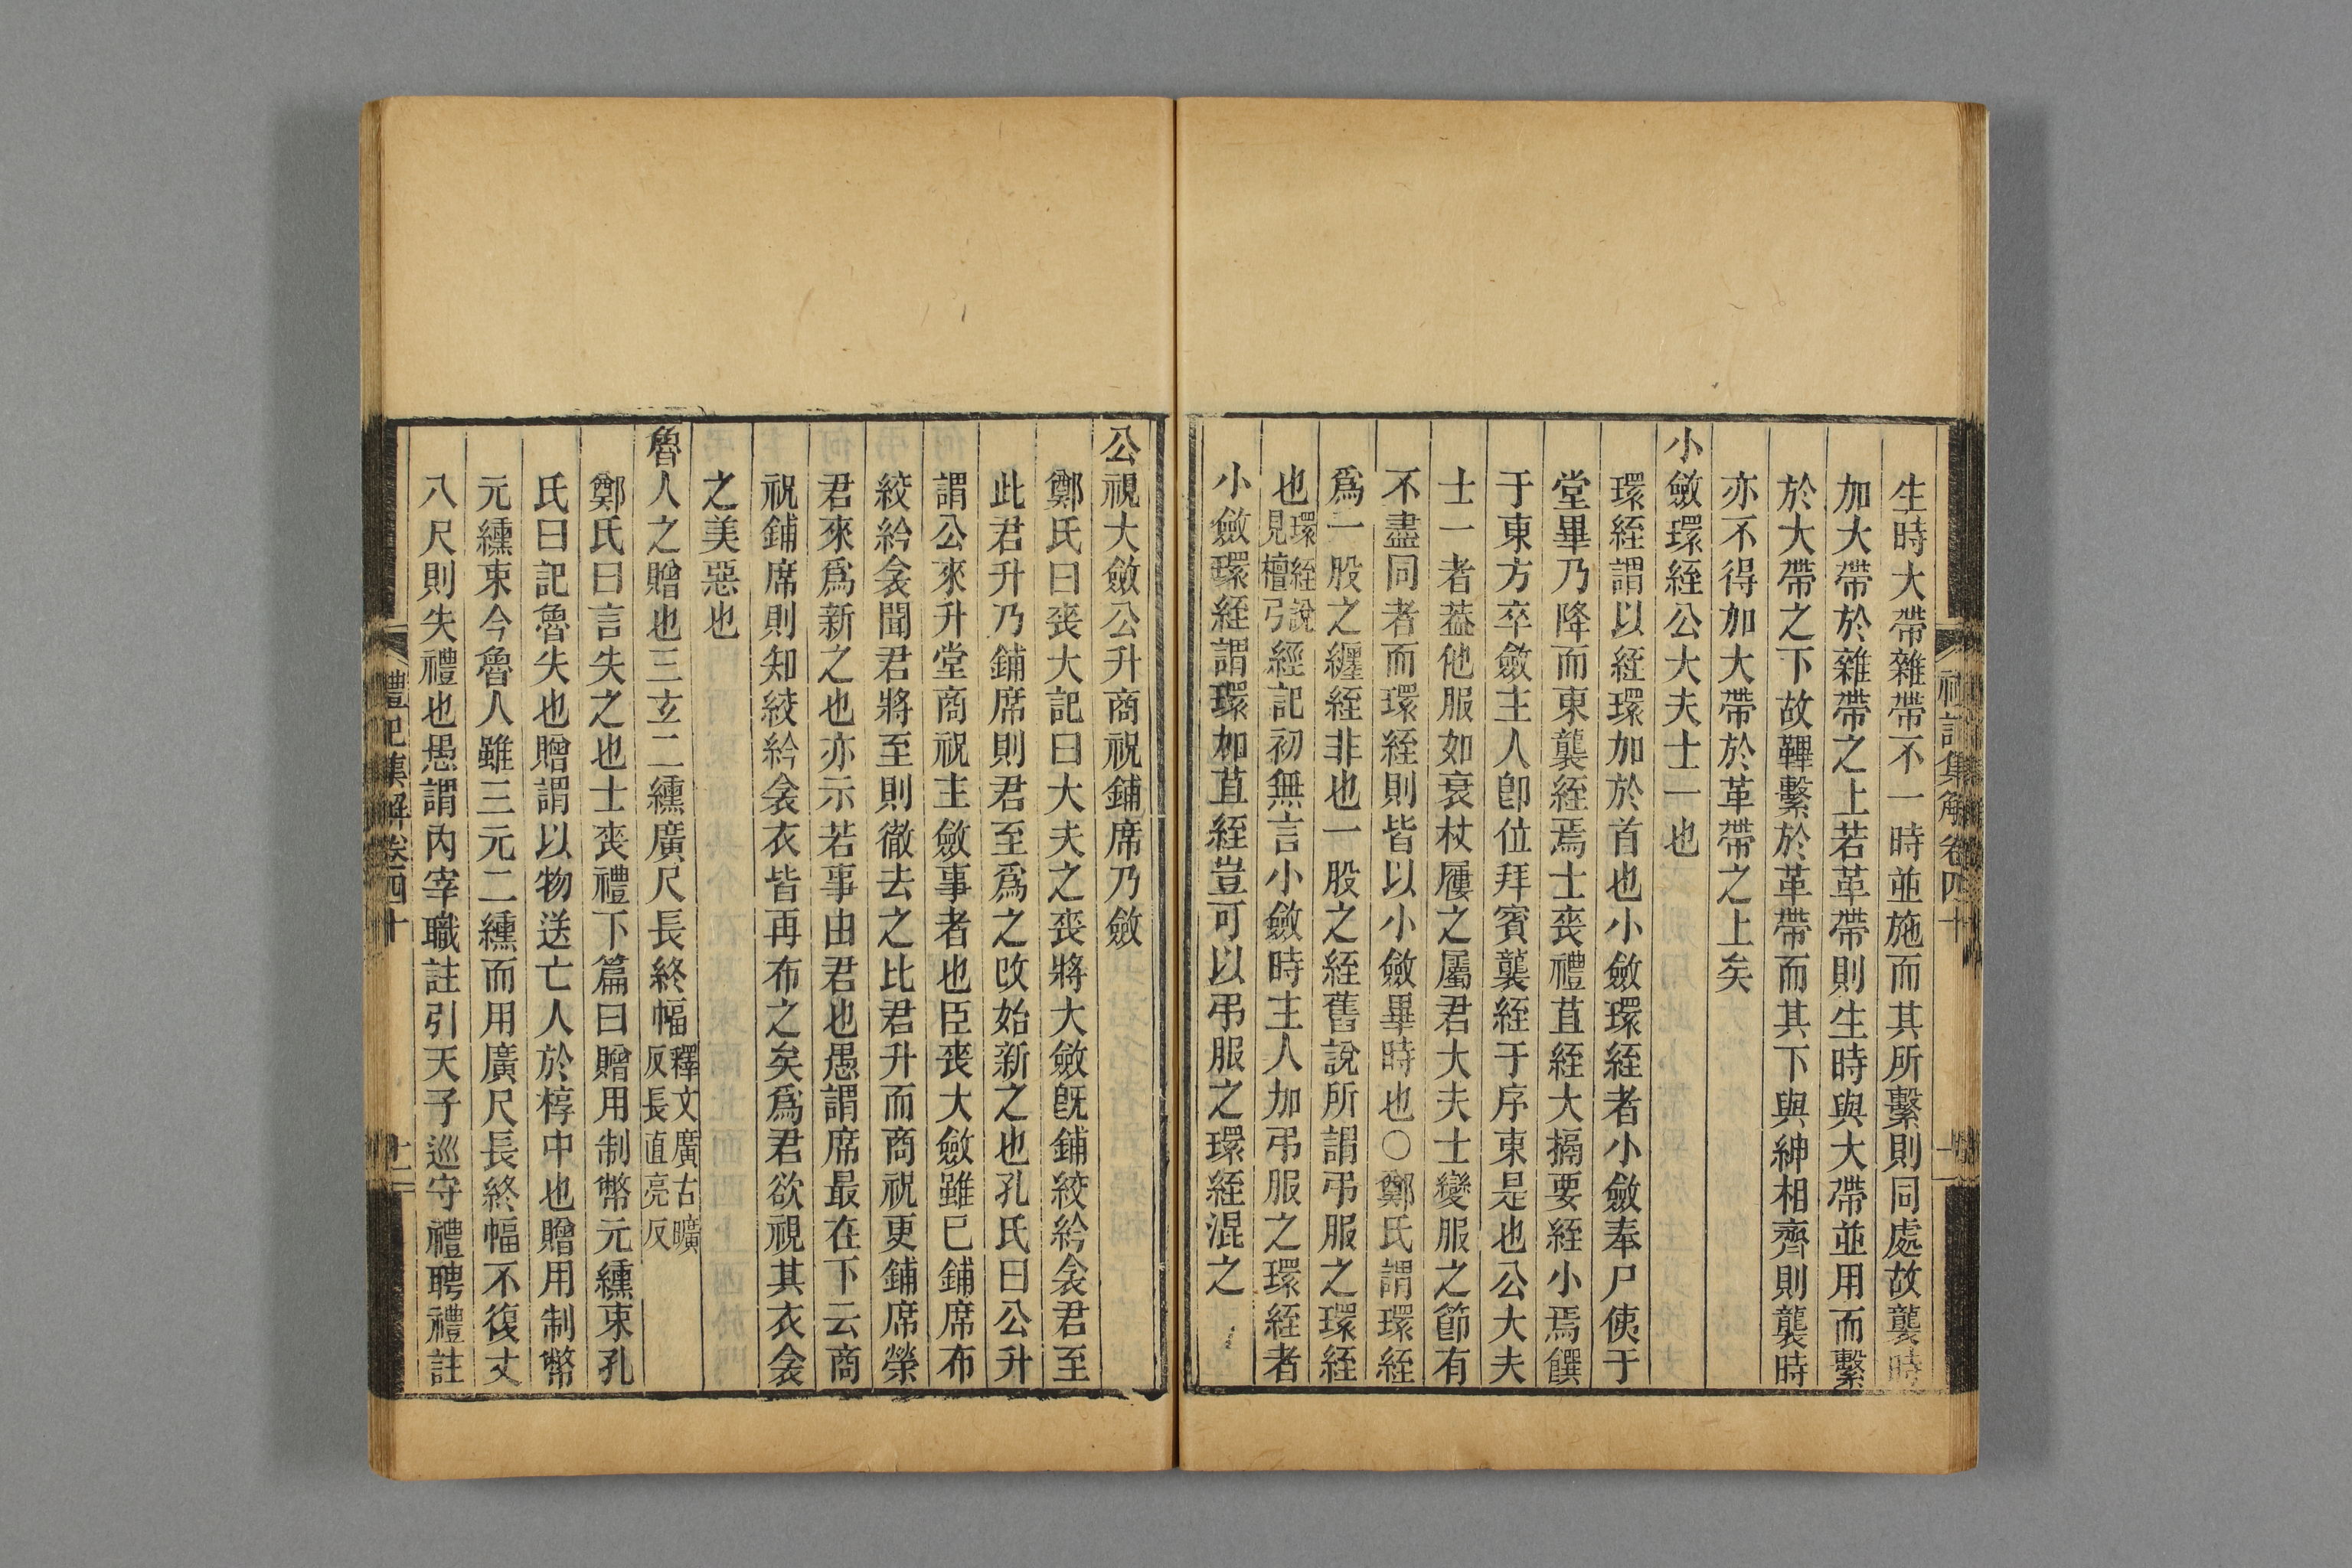 禮記集解卷四十
生時大帶雜帶不一時並施而其所繫則同處故襲時
加大帶於雜帶之上若革帶則生時與大帶並用而繫
於大帶之下故鞸繫於革帶而其下與紳相齊則襲時
亦不得加大帶於革帶之上矣
小斂環絰公大夫士一也
環絰謂以絰環加於首也小斂環絰者小斂奉尸侇于
堂畢乃降而東襲絰焉士喪禮苴絰大搹要絰小焉饌
于東方卒斂主人卽位拜賓襲絰于序東是也公大夫
士一者葢他服如衰杖屨之屬君大夫士變服之節有
不盡同者而環絰則皆以小斂畢時也○鄭氏謂環絰
爲一股之纏絰非也一股之絰舊說所謂弔服之環絰
也環絰說見檀弓經記初無言小斂時主人加弔服之環絰者
小斂環絰謂環加苴絰豈可以弔服之環絰混之
公視大斂公升商祝鋪席乃斂
鄭氏曰喪大記曰大夫之喪將大斂旣鋪絞紟衾君至
此君升乃鋪席則君至爲之改始新之也孔氏曰公升
謂公來升堂商祝主斂事者也臣喪大斂雖已鋪席布
絞紟衾聞君將至則徹去之比君升而商祝更鋪席榮
君來爲新之也亦示若事由君也愚謂席最在下云商
祝鋪席則知絞紟衾衣皆再布之矣爲君欲視其衣衾
之美惡也
魯人之贈也三玄二纁廣尺長終幅釋文廣古曠反長直亮反
鄭氏曰言失之也士喪禮下篇曰贈用制幣元纁束孔
氏曰記魯失也贈謂以物送亡人於椁中也贈用制幣
元纁束今魯人雖三元二纁而用廣尺長終幅不復丈
八尺則失禮也愚謂內宰職註引天子巡守禮聘禮註
禮記集解卷四十
十二